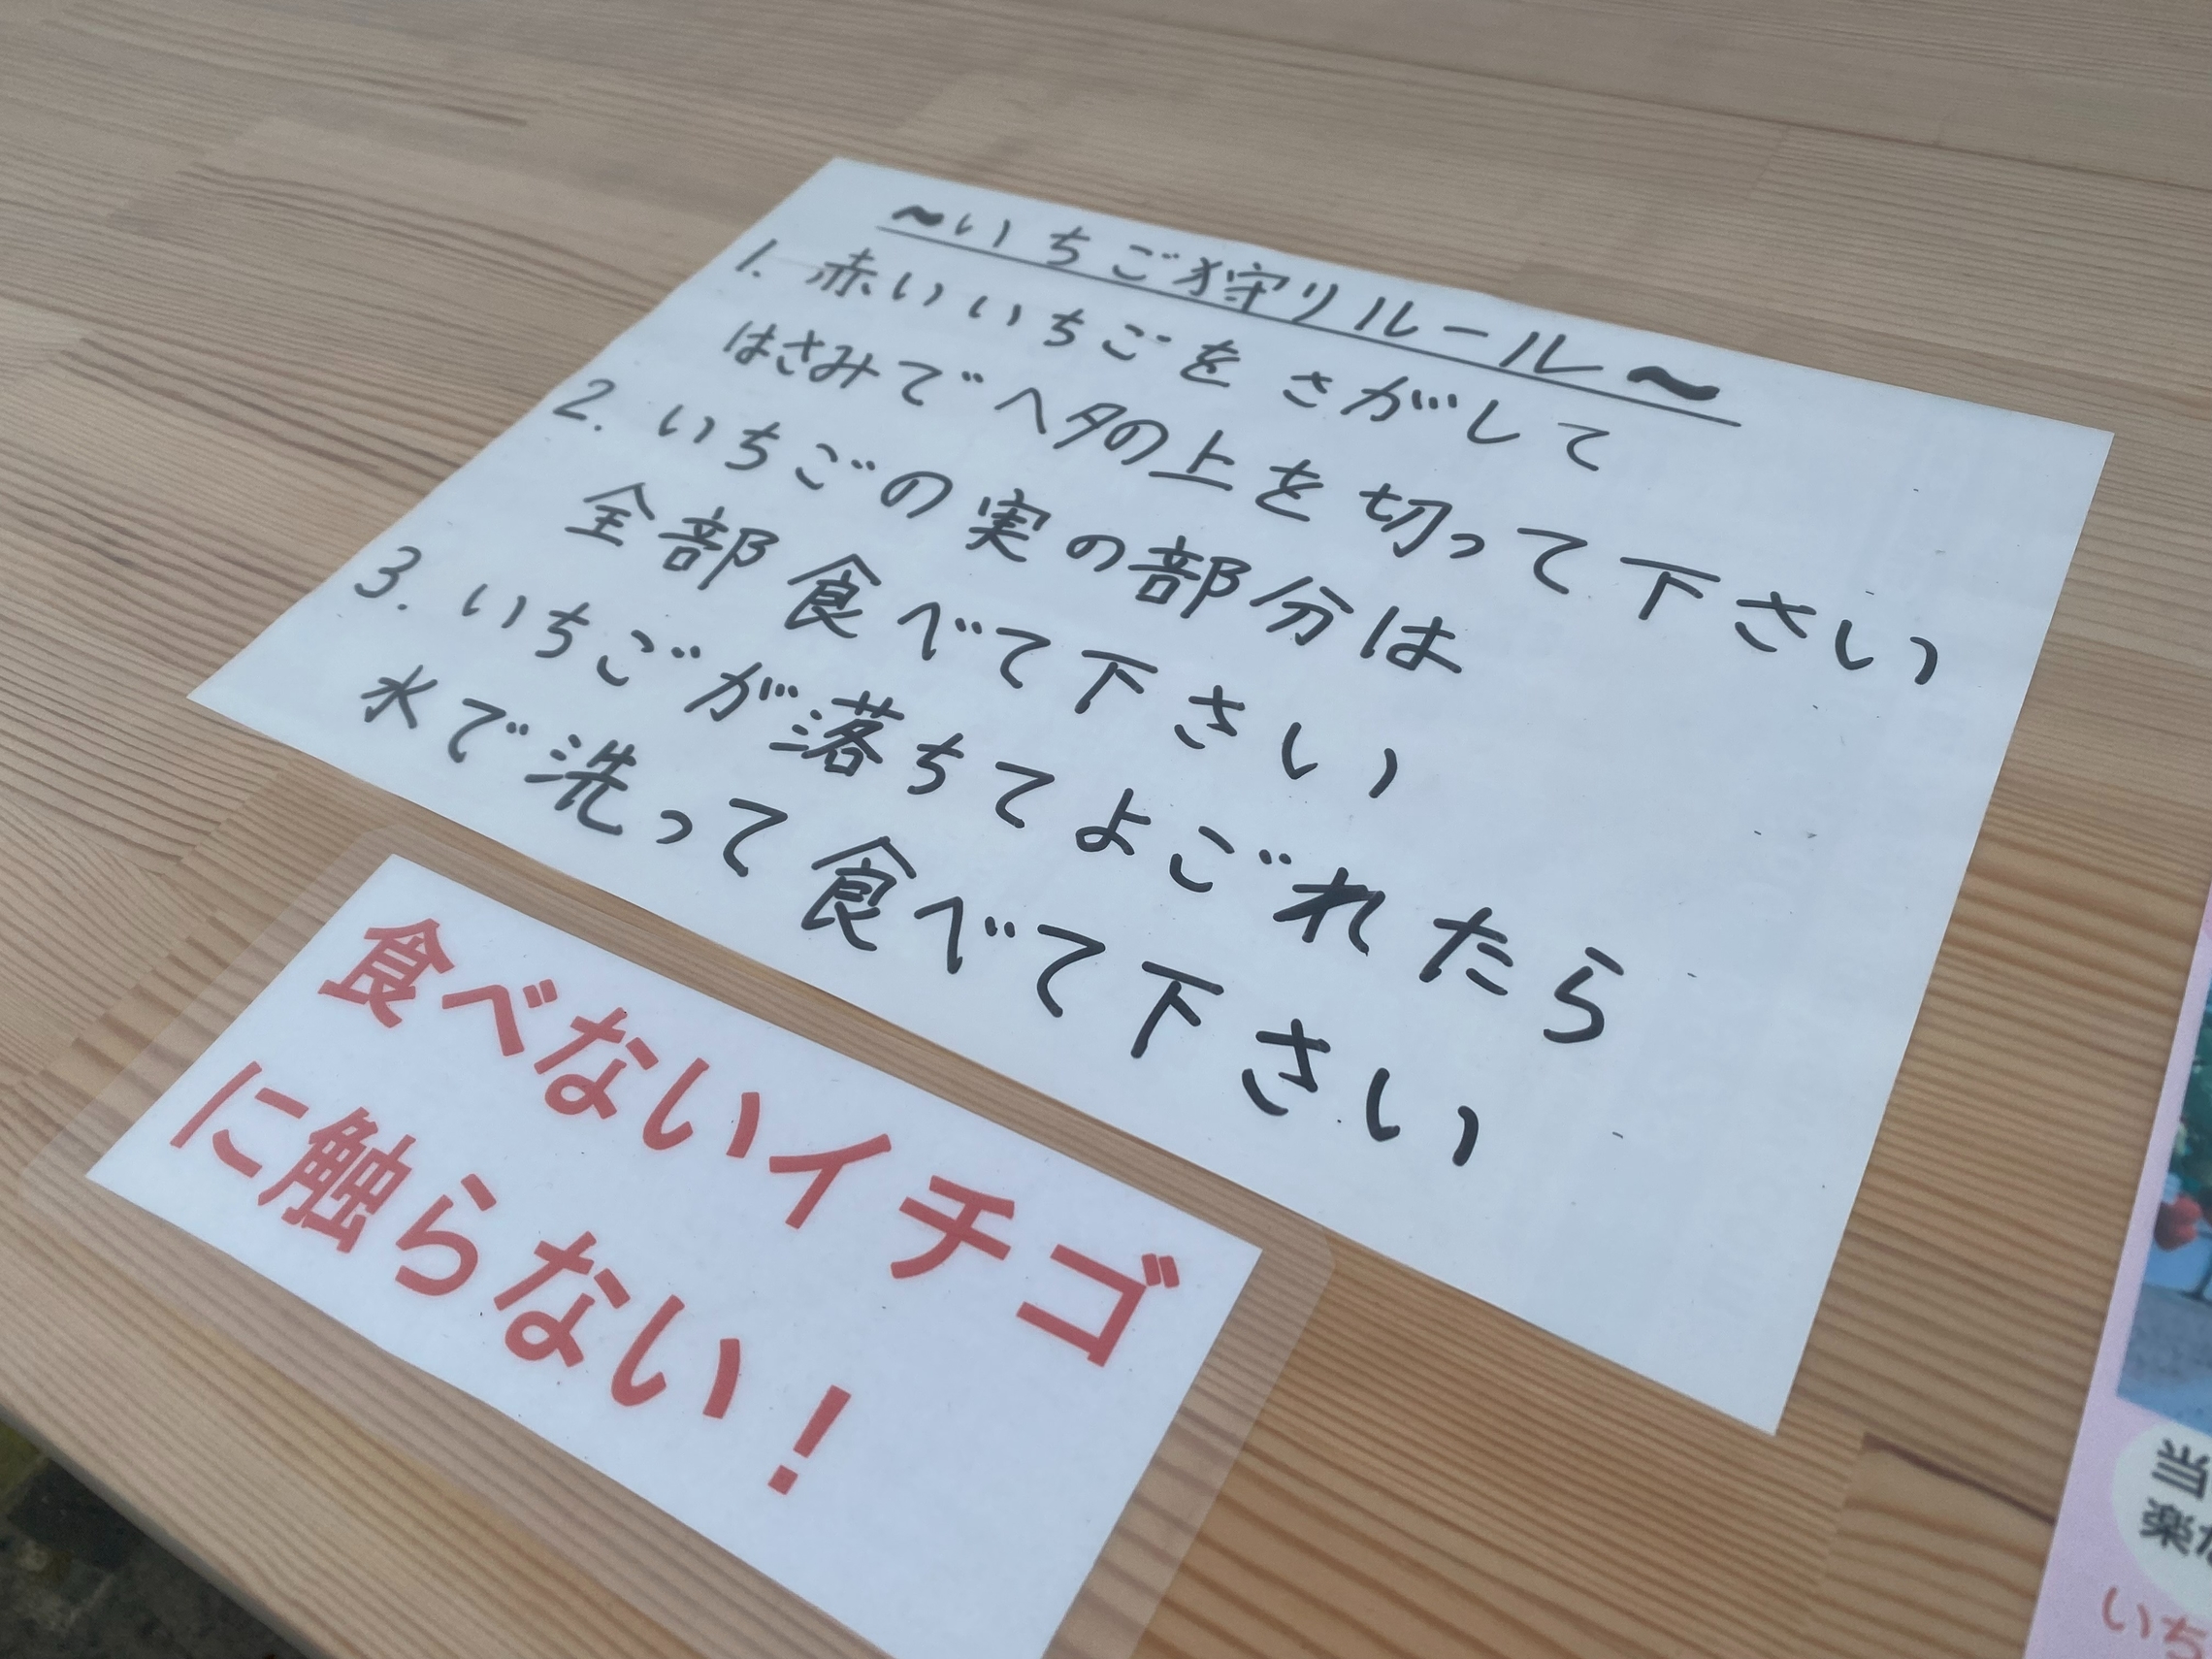 〜いちご狩りルール〜
1. 赤いいちごをさがして
はさみでヘタの上を切って下さい
2. いちごの実の部分は
全部食べて下さい
3. いちごが落ちてよごれたら
水で洗って食べて下さい
食べないイチゴ
に触らない！
当
楽
いち